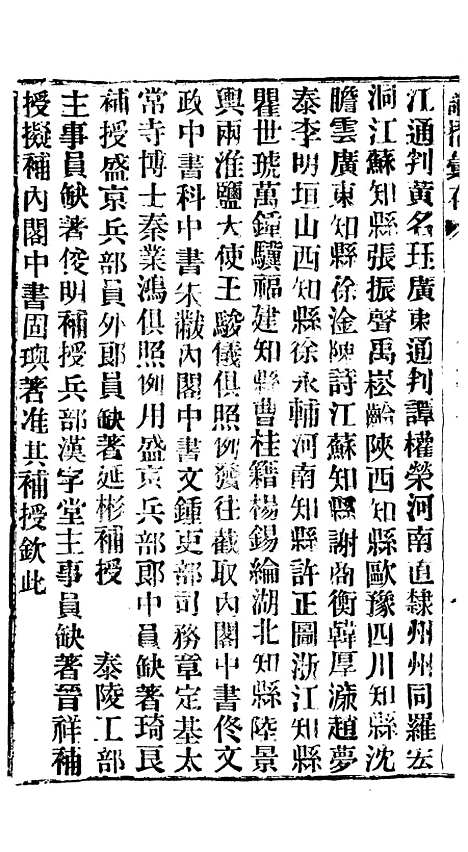 諭摺彙存
江通判黃名珏廣東通判譚權榮河南直隸州州同羅宏
洞江蘇知縣張振聲禹崧齡陝西知縣歐豫四川知縣沈
瞻雲廣東知縣徐淦陳詩江蘇知縣謝尚衡韓厚濂趙夢
泰李明垣山西知縣徐永輔河南知縣許正圖浙江知縣
瞿世琥萬鍾驥福建知縣曹桂籍楊錫綸湖北知縣陸景
輿兩淮鹽大使王駿儀俱照例發往截取內閣中書佟文
政中書科中書朱黻內閣中書文鍾吏部司務章定基太
常寺博士秦業鴻俱照例用盛京兵部郎中員缺著琦良
補授盛京兵部員外郎員缺著延彬補授　泰陵工部
主事員缺著俊明補授兵部漢字堂主事員缺著晉祥補
授擬補內閣中書固璵著准其補授欽此